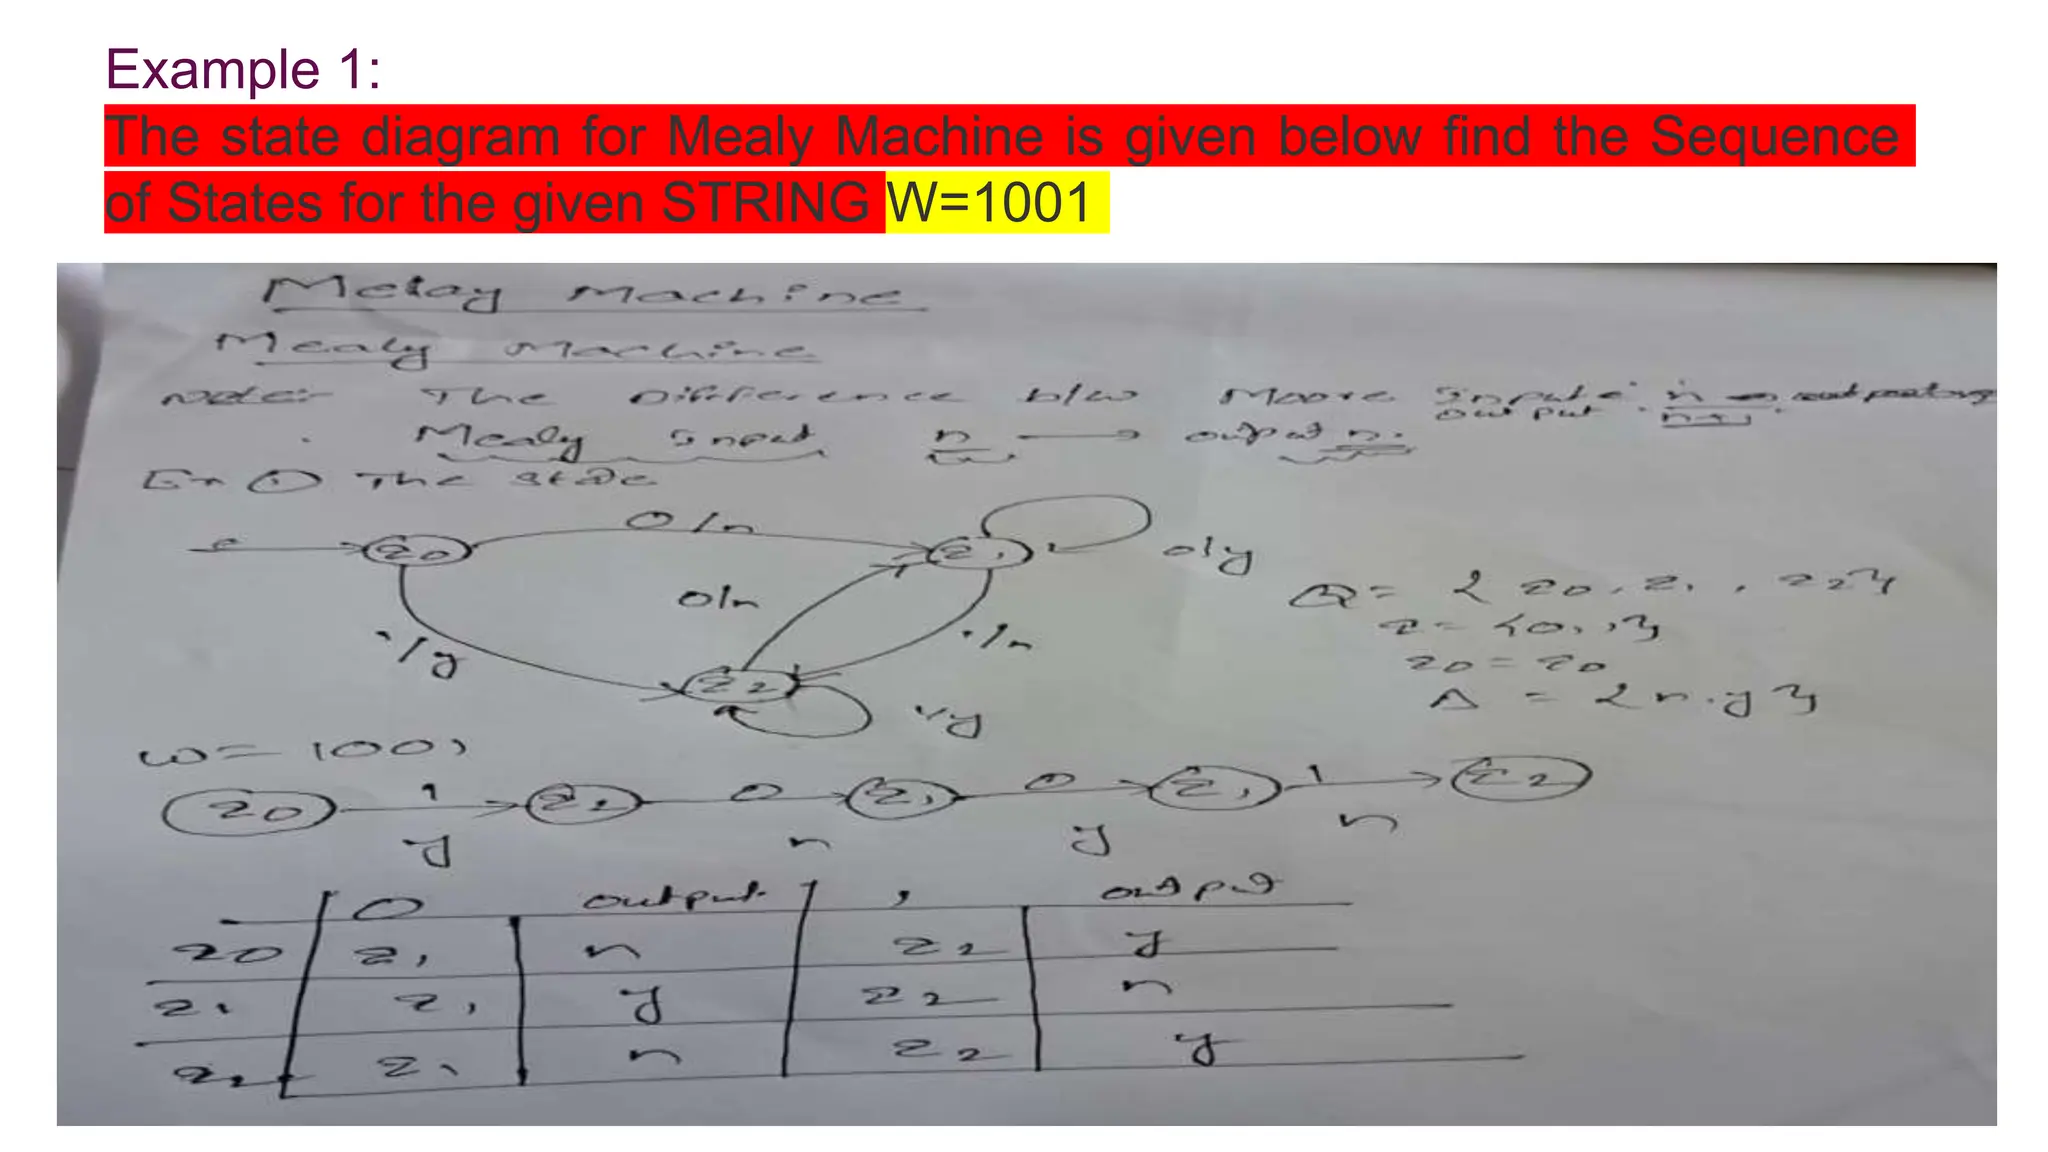 Example 1:
The state diagram for Mealy Machine is given below find the Sequence
of States for the given STRING W=1001
Melay Machine
Mealy Machine
Note:- The Difference b/w Moore Input n
output n+1.
Mealy Input n → output n.
Ex ① The state
0/n
z0
z1
0/y
0/n
1/n
1/y
z2
1/y
Q = { z0, z1, z2}
Σ = {0, 1}
z0 = z0
Δ = {n, y}
W = 1001
z0 1 z2 0 z1 0 z1 1 z2
y n y n
0 output 1 output
z0 z1 n z2 y
z1 z1 y z2 n
z2 z1 n z2 y